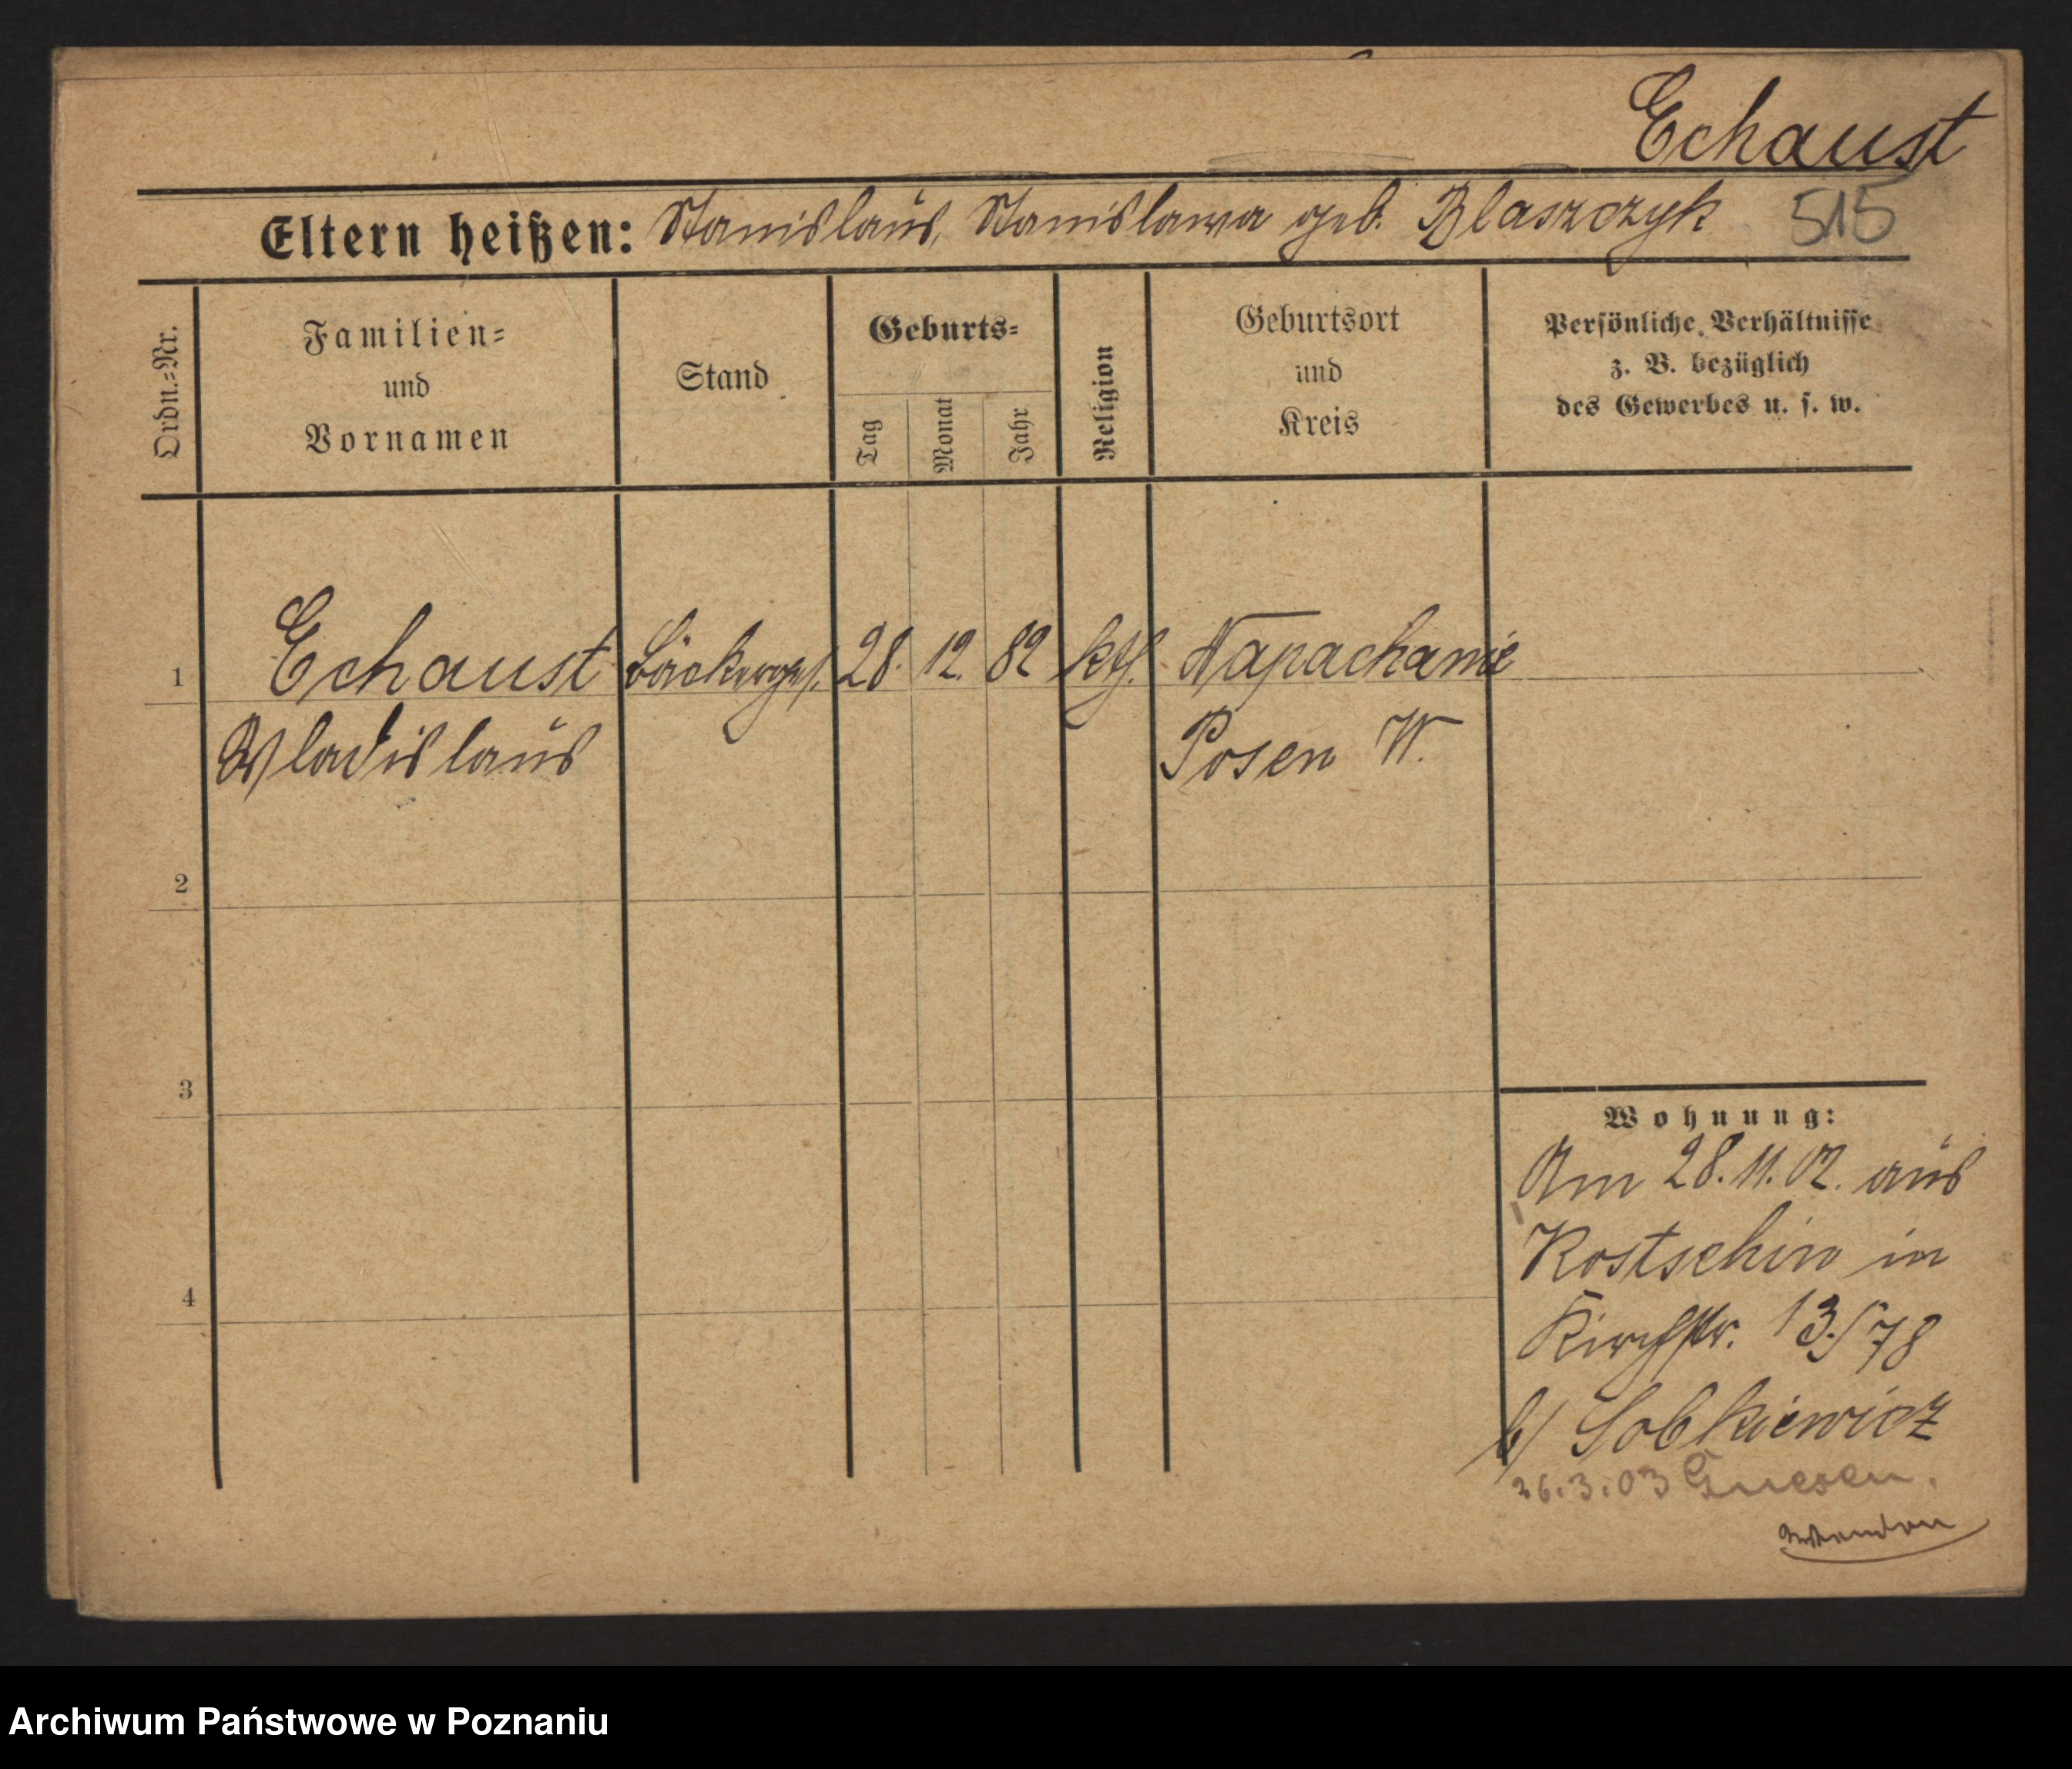 Echaust
Eltern heißen: Stanislaus, Stanislawa geb. Blaszczyk 515
Ordn.=Nr.
Familien=
und
Vornamen
Stand
Geburts=
Tag
Monat
Jahr
Religion
Geburtsort
und
Kreis
Persönliche Verhältnisse
z. B. bezüglich
des Gewerbes u. s. w.
1 Echaust Bäckerges. 28. 12. 82 kth. Napachanie
Wladislaus Posen W.
2
3
Wohnung:
Am 28.11.02. aus
Kostschin in
4
Kirchstr. 13./78
b/ Sobkiewicz
26.3.03 Gnesen.
Archiwum Państwowe w Poznaniu